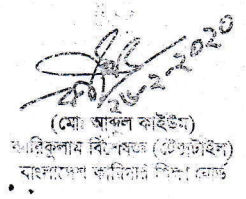 ২৬-২-২০২০
(মোঃ আব্দুল কাইউম)
কারিকুলাম বিশেষজ্ঞ (টেক্সটাইল)
বাংলাদেশ কারিগরি শিক্ষা বোর্ড